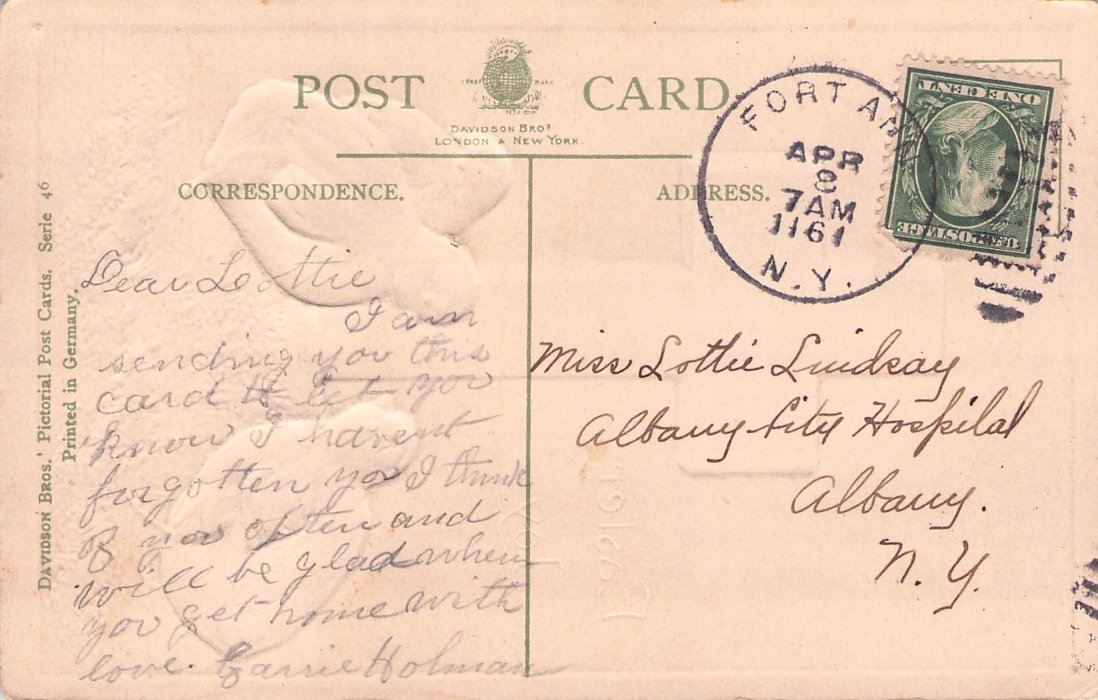 POST CARD
TRADE MARK
DAVIDSON BROS
LONDON & NEW YORK.
CORRESPONDENCE.
ADDRESS.
FORT ANN
APR
8
7 AM
1161
N.Y.
ONE CENT
U.S. POSTAGE
Dear Lottie
I am
sending you this
card to let you
know I havent
forgotten you I think
of you often and
will be glad when
you get home with
love. Carrie Holman
Miss Lottie Lindsay
Albany City Hospital
Albany.
N.Y.
DAVIDSON BROS.' Pictorial Post Cards. Serie 46
Printed in Germany.